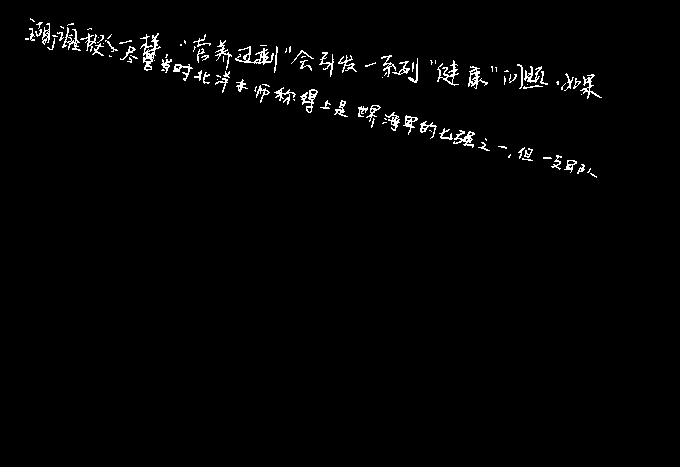 一样，“营养过剩”会引发一系列“健康”问题．如果
尽管当时北洋水师称得上是世界海军的七强之一，但一支军队